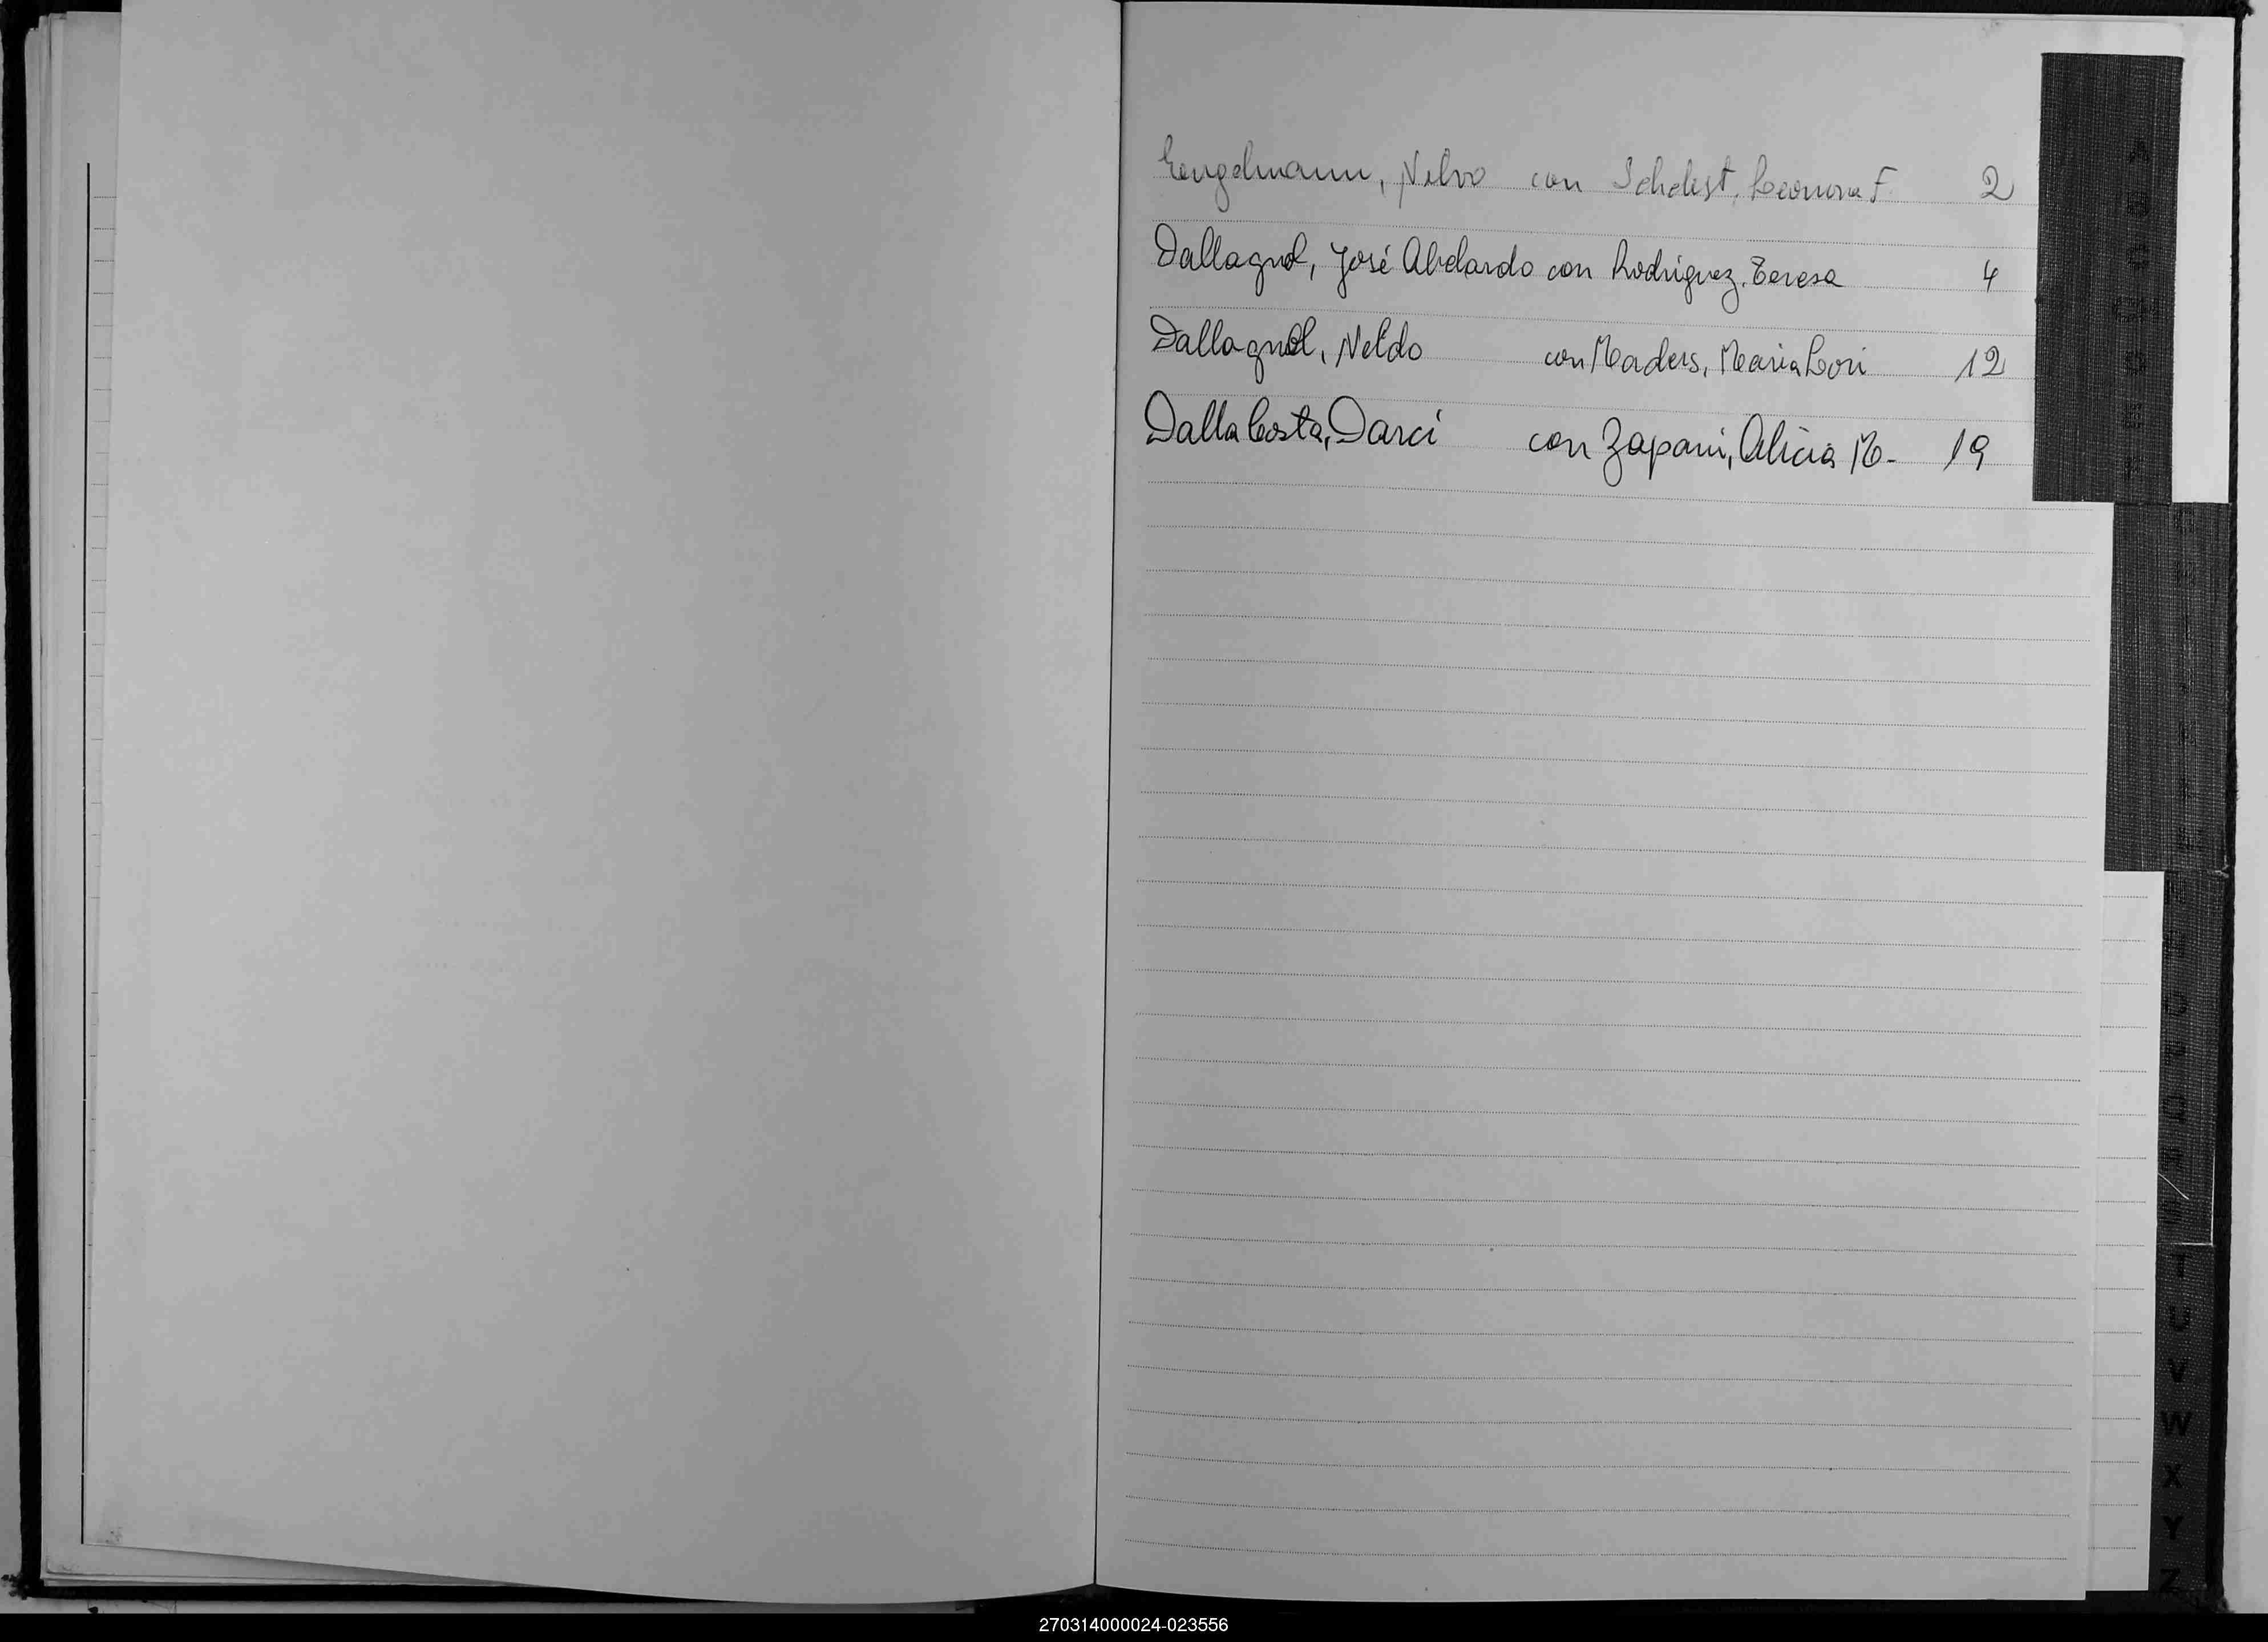 Engelmann, Nelvo con Schelist, Leonora F. 2
Dallagnol, José Abelardo con Rodriguez, Teresa 4
Dallagnol, Neldo con Maders, Maria Lori 12
Dalla Costa, Darci con Zapani, Alicia M. - 19
T
U
V
W
X
Y
Z
270314000024-023556